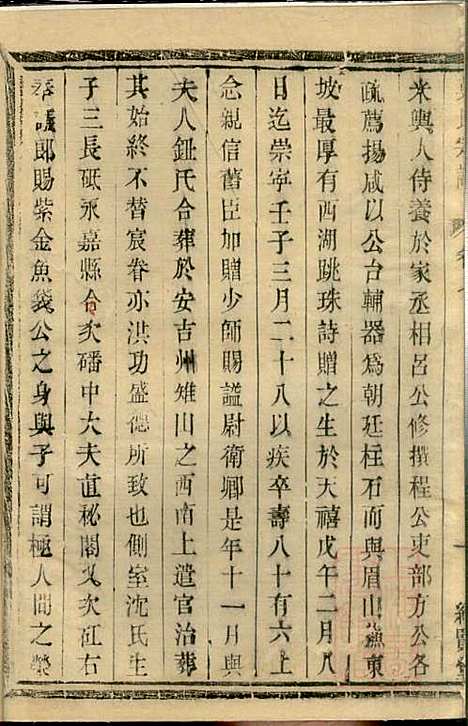 來興人侍養於家丞相呂公修撰程公吏部方公各
疏薦揚咸以公台輔器為朝廷柱石而與眉山蘇東
坡最厚有西湖跳珠詩贈之生於天禧戊午二月八
日迄崇寧壬子三月二十八以疾卒壽八十有六上
念親信舊臣加贈少師賜謚尉衛卿是年十一月與
夫人鈕氏合葬於安吉州雉山之西南上遣官治葬
其始終不替宸眷亦洪功盛德所致也側室沈氏生
子三長砥永嘉縣令次磻中大夫直秘閣又次矼右
奉議郎賜紫金魚袋公之身與子可謂極人間之榮